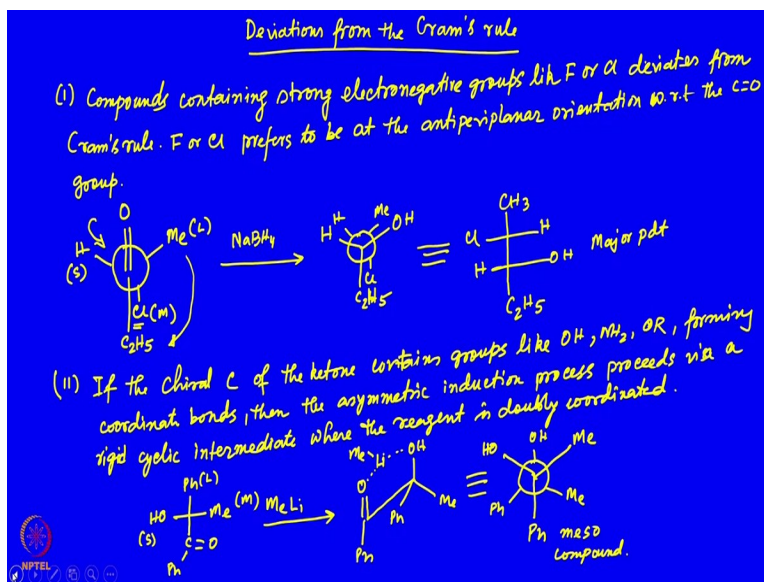 Deviations from the Cram's rule
(1) Compounds containing strong electronegative groups lik F or Cl deviates from
Cram's rule. F or Cl prefers to be at the antiperiplanar orientation w.r.t the C=O
group.
O
H
(S)
Me (L)
Cl (M)
C2H5
NaBH4
H
H
Me
OH
Cl
C2H5
≡
CH3
Cl
H
H
OH
C2H5
Major pdt
(11) If the chiral C of the ketone contains groups like OH, NH2, OR, forming
coordinate bonds, then the asymmetric induction process proceeds via a
rigid cyclic intermediate where the reagent is doubly coordinated.
Ph (L)
HO
(S)
Me (M)
C=O
Ph
MeLi
Me
Li
OH
O
Ph
Me
Ph
≡
HO
OH
Me
Ph
Me
Ph
meso
compound.
NPTEL